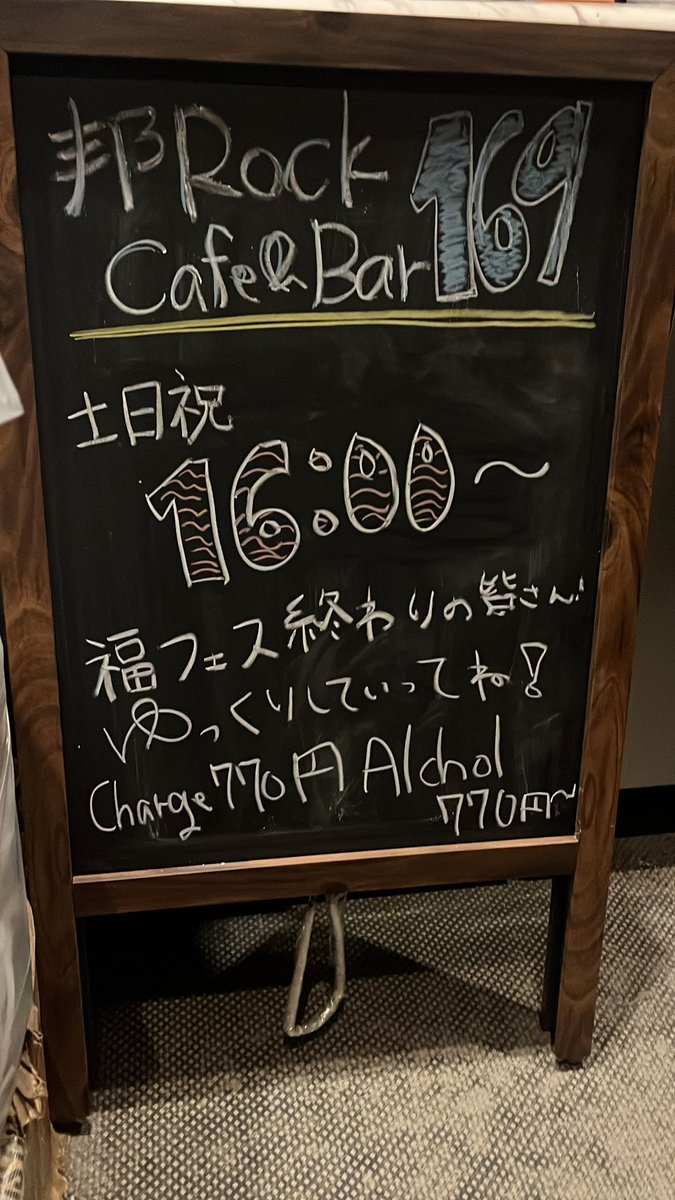 邦Rock 169
Cafe&Bar
土日祝
16:00〜
福フェス終わりの皆さん!
ゆっくりしていってね!
Charge770円 Alchol
770円〜